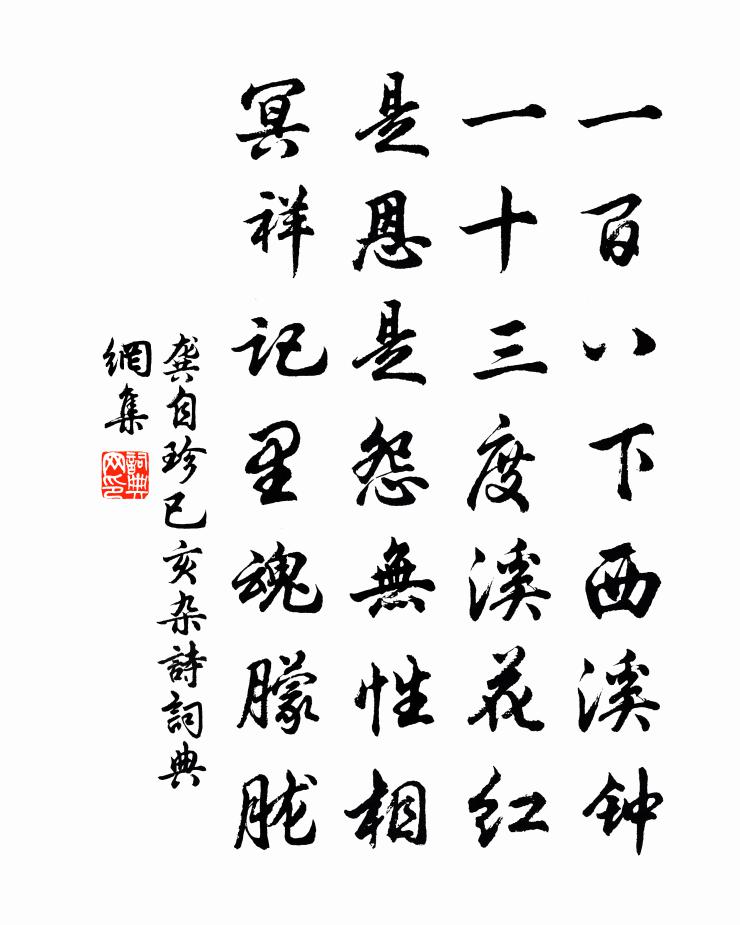 一百八下西溪钟
一十三度溪花红
是恩是怨無性相
冥祥记里魂朦胧
龚自珍已亥杂詩詞典
網集
詞典网印